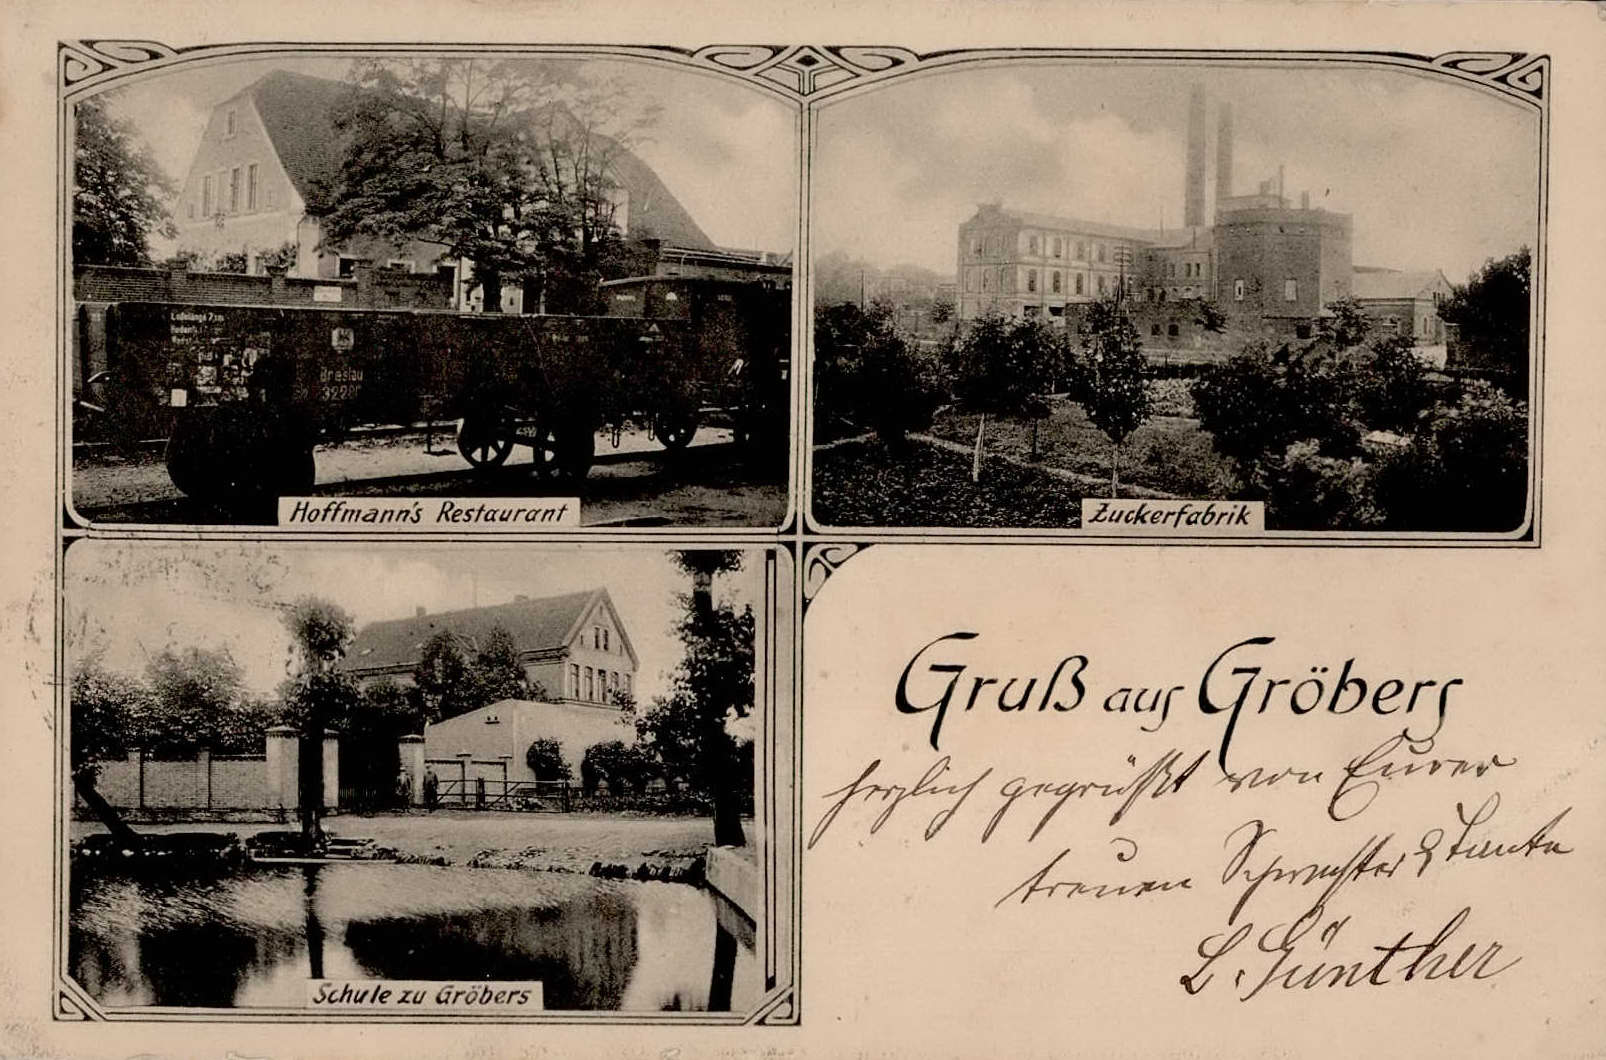 Ladelänge 7,
Breslau
Hoffmann's Restaurant
Zuckerfabrik
Schule zu Gröbers
Gruß aus Gröbers
herzlich gegrüßt von Eurer
treuen Schwester & Tante
L. Günther